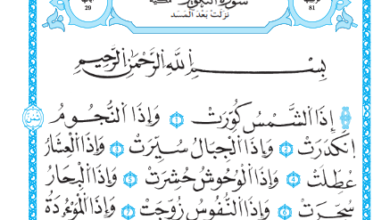 81
سُورَةُ التَّكْوِير
29
نَزَلَتْ بَعْدَ الْمَسَد
بِسْمِ اِللَّهِ اِلرَّحْمَٰنِ اِلرَّحِيمِ
إِذَا اَلشَّمْسُ كُوِّرَتْ وَإِذَا اَلنُّجُومُ
اُنكَدَرَتْ وَإِذَا اَلْجِبَالُ سُيِّرَتْ وَإِذَا اَلْعِشَارُ
عُطِّلَتْ وَإِذَا اَلْوُحُوشُ حُشِرَتْ وَإِذَا اَلْبِحَارُ
سُجِّرَتْ وَإِذَا اَلنُّفُوسُ زُوِّجَتْ وَإِذَا اَلْمَوْءُودَةُ